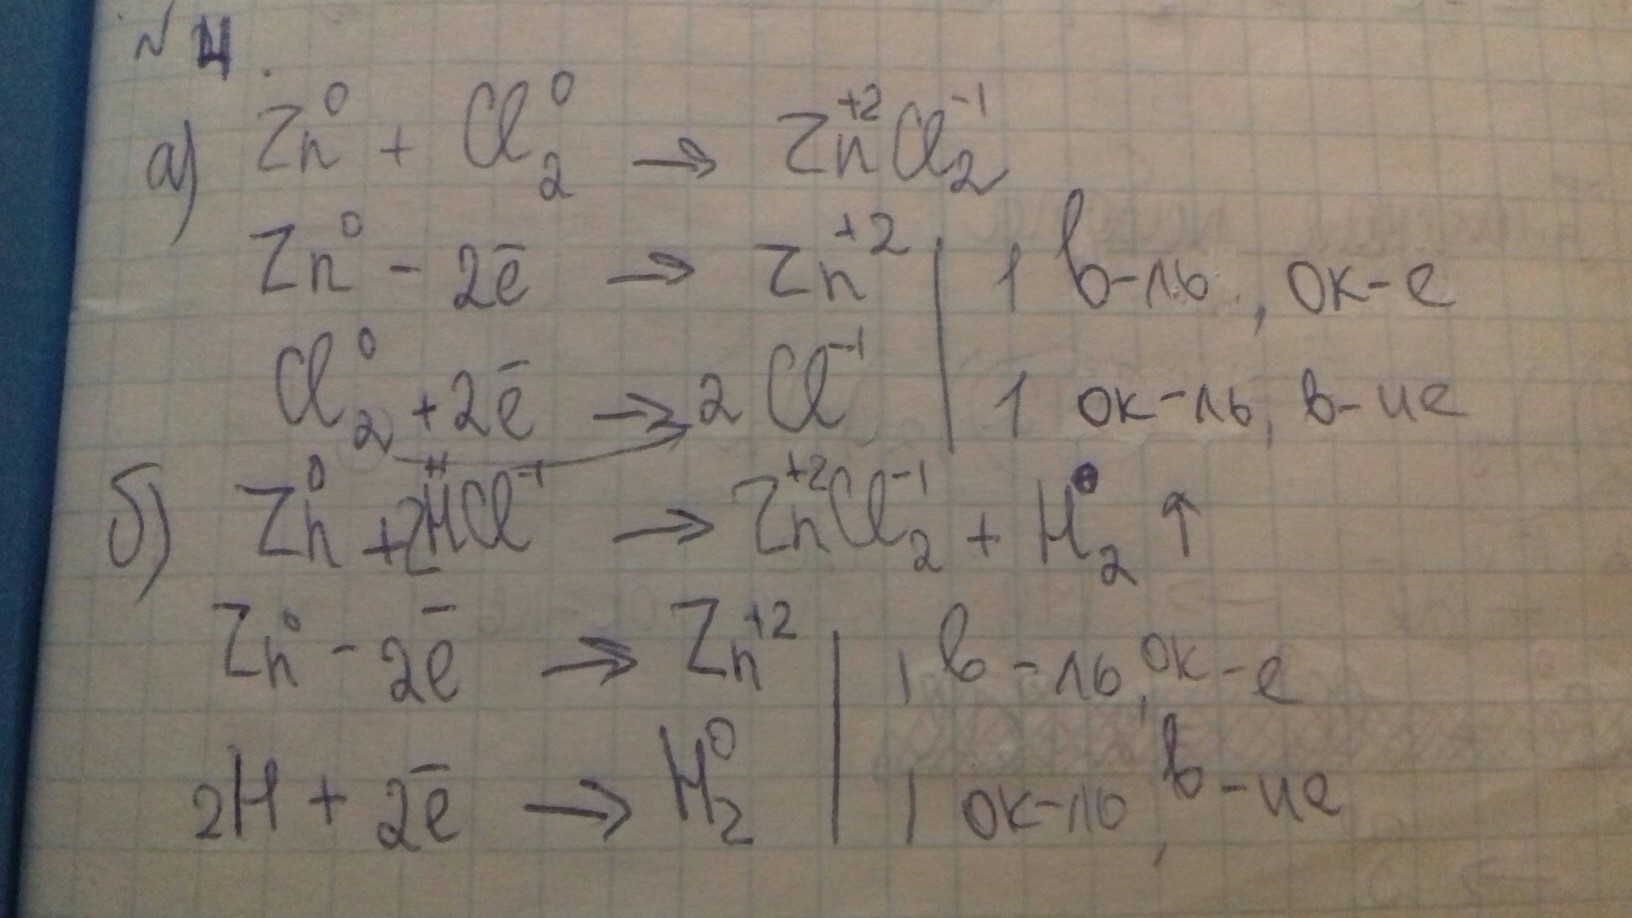 № 4.
а) Zn⁰ + Cl₂⁰ → Zn⁺²Cl₂⁻¹
Zn⁰ - 2ē → Zn⁺² | 1 в-ль, ок-е
Cl₂⁰ + 2ē → 2Cl⁻¹ | 1 ок-ль, в-ие
б) Zn⁰ + 2H⁺¹Cl⁻¹ → Zn⁺²Cl₂⁻¹ + H₂⁰ ↑
Zn⁰ - 2ē → Zn⁺² | 1 в-ль, ок-е
2H + 2ē → H₂⁰ | 1 ок-ль, в-ие